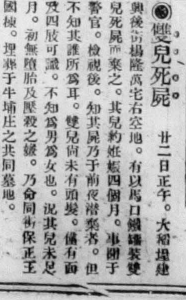 雙兒死屍 廿二日正午。大稻埕建
興後街楊隆萬宅右空地。有以馬口鐵罐裝雙
兒死屍而棄之。其兒約姙娠四個月。事聞于
警官。檢視後。知其屍乃于前夜潛棄者。但
不知其誰所為耳。雙兒尚未有頭髮。僅有面
及四肢可識。不知為男為女也。況其兒未足
月。初無墮胎及壓殺之嫌。乃命同街保正王
國棟。埋葬于牛埔庄之共同墓地。